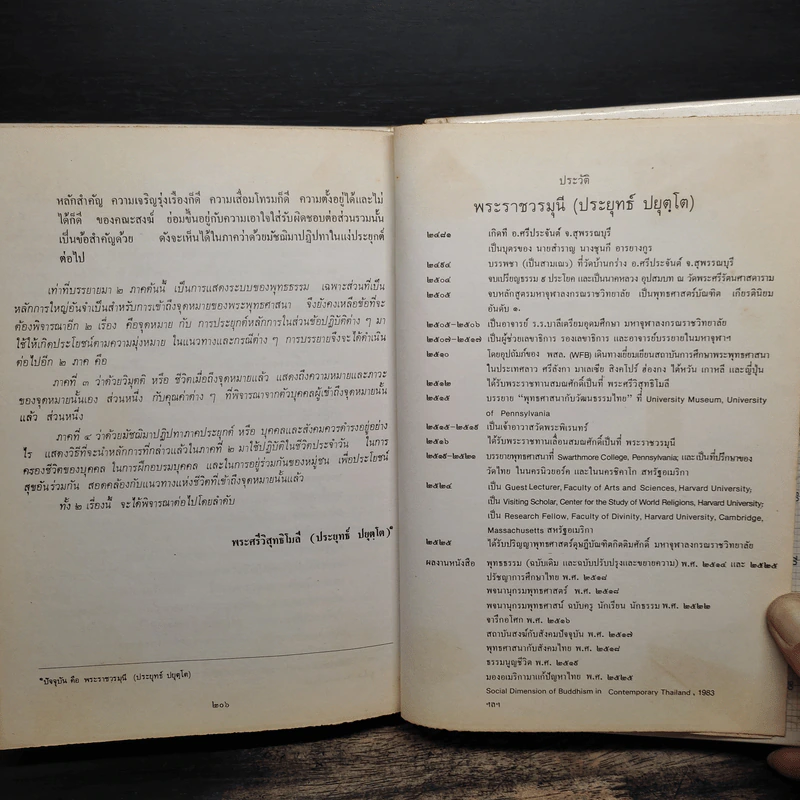 หลักสำคัญ ความเจริญรุ่งเรืองก็ดี ความเสื่อมโทรมก็ดี ความตั้งอยู่ได้และไม่
ได้ก็ดี ของคณะสงฆ์ ย่อมขึ้นอยู่กับความเอาใจใส่รับผิดชอบต่อส่วนรวมนั้น
เป็นข้อสำคัญด้วย ดังจะเห็นได้ในภาคว่าด้วยมัชฌิมาปฏิปทาในแง่ประยุกต์
ต่อไป
เท่าที่บรรยายมา ๒ ภาคต้นนี้ เป็นการแสดงระบบของพุทธธรรม เฉพาะส่วนที่เป็น
หลักการใหญ่อันจำเป็นสำหรับการเข้าถึงจุดหมายของพระพุทธศาสนา จึงยังคงเหลือข้อที่จะ
ต้องพิจารณาอีก ๒ เรื่อง คือจุดหมาย กับ การประยุกต์หลักการในส่วนข้อปฏิบัติต่าง ๆ มา
ใช้ให้เกิดประโยชน์ตามความมุ่งหมาย ในแนวทางและกรณีต่าง ๆ การบรรยายจึงจะได้ดำเนิน
ต่อไปอีก ๒ ภาค คือ
ภาคที่ ๓ ว่าด้วยวิมุตติ หรือ ชีวิตเมื่อถึงจุดหมายแล้ว แสดงถึงความหมายและภาวะ
ของจุดหมายนั้นเอง ส่วนหนึ่ง กับคุณค่าต่าง ๆ ที่พิจารณาจากตัวบุคคลผู้เข้าถึงจุดหมายนั้น
แล้ว ส่วนหนึ่ง
ภาคที่ ๔ ว่าด้วยมัชฌิมาปฏิปทาภาคประยุกต์ หรือ บุคคลและสังคมควรดำรงอยู่อย่าง
ไร แสดงวิธีที่จะนำหลักการที่กล่าวแล้วในภาคที่ ๒ มาใช้ปฏิบัติในชีวิตประจำวัน ในการ
ครองชีวิตของบุคคล ในการฝึกอบรมบุคคล และในการอยู่ร่วมกันของหมู่ชน เพื่อประโยชน์
สุขอันร่วมกัน สอดคล้องกับแนวทางแห่งชีวิตที่เข้าถึงจุดหมายนั้นแล้ว
ทั้ง ๒ เรื่องนี้ จะได้พิจารณาต่อไปโดยลำดับ
พระศรีวิสุทธิโมลี (ประยุทธ์ ปยุตฺโต)*
*ปัจจุบัน คือ พระราชวรมุนี (ประยุทธ์ ปยุตฺโต)
๒๐๖
ประวัติ
พระราชวรมุนี (ประยุทธ์ ปยุตฺโต)
๒๔๘๑ เกิดที่ อ.ศรีประจันต์ จ.สุพรรณบุรี
เป็นบุตรของ นายสำราญ นางชุนกี อารยางกูร
๒๔๙๔ บรรพชา (เป็นสามเณร) ที่วัดบ้านกร่าง อ.ศรีประจันต์ จ.สุพรรณบุรี
๒๕๐๔ จบเปรียญธรรม ๙ ประโยค และเป็นนาคหลวง อุปสมบท ณ วัดพระศรีรัตนศาสดาราม
๒๕๐๕ จบหลักสูตรมหาจุฬาลงกรณราชวิทยาลัย เป็นพุทธศาสตร์บัณฑิต เกียรตินิยม
อันดับ ๑.
๒๕๐๕-๒๕๐๖ เป็นอาจารย์ ร.ร.บาลีเตรียมอุดมศึกษา มหาจุฬาลงกรณราชวิทยาลัย
๒๕๐๗-๒๕๑๗ เป็นผู้ช่วยเลขาธิการ รองเลขาธิการ และอาจารย์บรรยายในมหาจุฬาฯ
๒๕๑๐ โดยอุปถัมภ์ของ พสล. (WFB) เดินทางเยี่ยมเยียนสถาบันการศึกษาพระพุทธศาสนา
ในประเทศลาว ศรีลังกา มาเลเซีย สิงคโปร์ ฮ่องกง ไต้หวัน เกาหลี และญี่ปุ่น
๒๕๑๒ ได้รับพระราชทานสมณศักดิ์เป็นที่ พระศรีวิสุทธิโมลี
๒๕๑๕ บรรยาย “พุทธศาสนากับวัฒนธรรมไทย” ที่ University Museum, University
of Pennsylvania
๒๕๑๕-๒๕๑๙ เป็นเจ้าอาวาสวัดพระพิเรนทร์
๒๕๑๖ ได้รับพระราชทานเลื่อนสมณศักดิ์เป็นที่ พระราชวรมุนี
๒๕๑๙-๒๕๒๑ บรรยายพุทธศาสนาที่ Swarthmore College, Pennsylvania; และเป็นที่ปรึกษาของ
วัดไทย ในนครนิวยอร์ค และในนครชิคาโก สหรัฐอเมริกา
๒๕๒๔ เป็น Guest Lecturer, Faculty of Arts and Sciences, Harvard University;
เป็น Visiting Scholar, Center for the Study of World Religions, Harvard University;
เป็น Research Fellow, Faculty of Divinity, Harvard University, Cambridge,
Massachusetts สหรัฐอเมริกา
๒๕๒๕ ได้รับปริญญาพุทธศาสตร์ดุษฎีบัณฑิตกิตติมศักดิ์ มหาจุฬาลงกรณราชวิทยาลัย
ผลงานหนังสือ พุทธธรรม (ฉบับเดิม และฉบับปรับปรุงและขยายความ) พ.ศ. ๒๕๑๔ และ ๒๕๒๕
ปรัชญาการศึกษาไทย พ.ศ. ๒๕๑๘
พจนานุกรมพุทธศาสตร์ พ.ศ. ๒๕๑๘
พจนานุกรมพุทธศาสน์ ฉบับครู นักเรียน นักธรรม พ.ศ. ๒๕๒๒
จารึกอโศก พ.ศ. ๒๕๑๖
สถาบันสงฆ์กับสังคมปัจจุบัน พ.ศ. ๒๕๑๗
พุทธศาสนากับสังคมไทย พ.ศ. ๒๕๑๘
ธรรมนูญชีวิต พ.ศ. ๒๕๑๙
มองอเมริกามาแก้ปัญหาไทย พ.ศ. ๒๕๒๕
Social Dimension of Buddhism in Contemporary Thailand, 1983
ฯลฯ